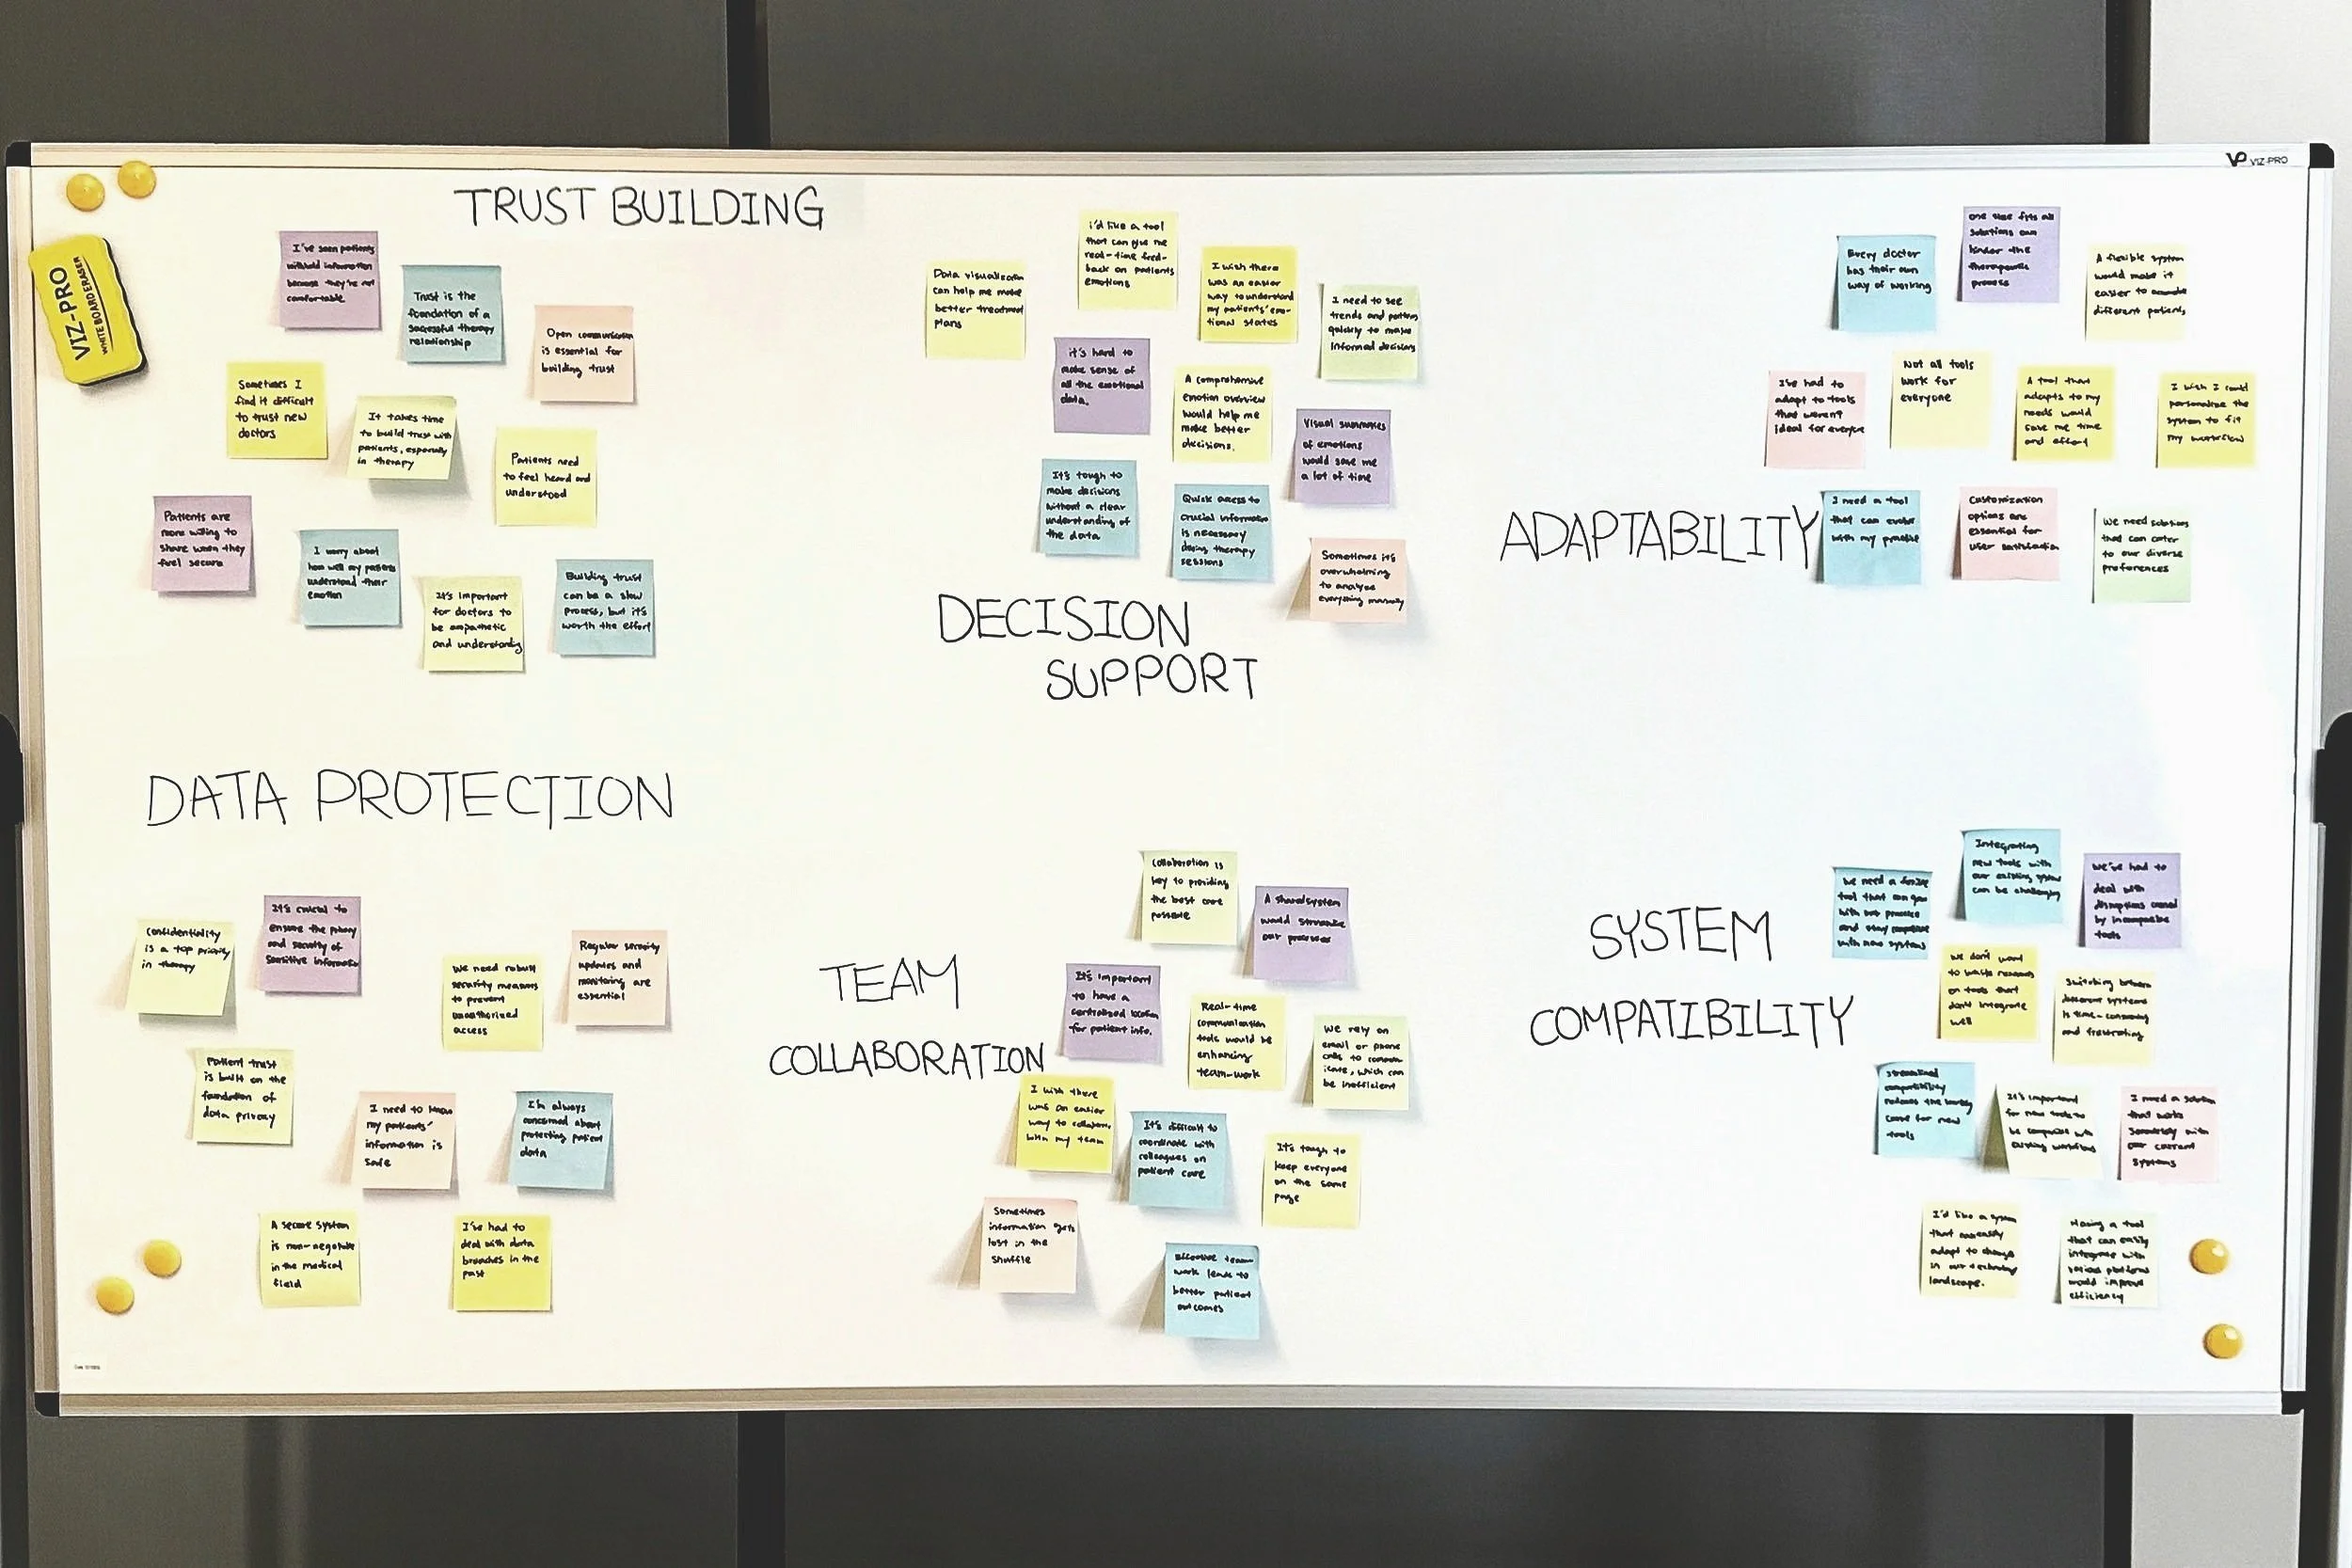 VIZ-PRO
VIZ-PRO
WHITE BOARD ERASER
TRUST BUILDING
I've seen patients
withhold information
because they're not
comfortable
Trust is the
foundation of a
successful therapy
relationship
Open communication
is essential for
building trust
Sometimes I
find it difficult
to trust new
doctors
It takes time
to build trust with
patients, especially
in therapy
Patients need
to feel heard and
understood
Patients are
more willing to
share when they
feel secure
I worry about
how well my patients
understand their
emotion
It's important
for doctors to
be empathetic
and understanding
Building trust
can be a slow
process, but it's
worth the effort
Data visualization
can help me make
better treatment
plans
i'd like a tool
that can give me
real-time feed-
back on patients
emotions
I wish there
was an easier
way to understand
my patients' emo-
tional states
I need to see
trends and patterns
quickly to make
informed decisions
it's hard to
make sense of
all the emotional
data.
A comprehensive
emotion overview
would help me
make better
decisions.
Visual summaries
of emotions
would save me
a lot of time
It's tough to
make decisions
without a clear
understanding of
the data
Quick access to
crucial information
is necessary
during therapy
sessions
Sometimes it's
overwhelming
to analyze
everything manually
DECISION
SUPPORT
Every doctor
has their own
way of working
one size fits all
solutions can
hinder the
therapeutic
process
A flexible system
would make it
easier to
different patients
I've had to
adapt to tools
that weren't
ideal for everyone
Not all tools
work for
everyone
A tool that
adapts to my
needs would
save me time
and effort
I wish I could
personalize the
system to fit
my workflow
ADAPTABILITY
I need a tool
that can evolve
with my practice
Customization
options are
essential for
user satisfaction
We need solutions
that can cater
to our diverse
preferences
DATA PROTECTION
Confidentiality
is a top priority
in therapy
It's crucial to
ensure the privacy
and security of
sensitive information
We need robust
security measures
to prevent
unauthorized
access
Regular security
updates and
monitoring are
essential
Patient trust
is built on the
foundation of
data privacy
I need to know
my patients'
information is
safe
I'm always
concerned about
protecting patient
data
A secure system
is non-negotiable
in the medical
field
I've had to
deal with data
breaches in the
past
TEAM
COLLABORATION
Collaboration is
key to providing
the best care
possible
A shared system
would streamline
our processes
It's important
to have a
centralized location
for patient info.
Real-time
communication
tools would be
enhancing
team-work
We rely on
email or phone
calls to commun-
icate, which can
be inefficient
I wish there
was an easier
way to collaborate
with my team
It's difficult to
coordinate with
colleagues on
patient care
It's tough to
keep everyone
on the same
page
Sometimes
information gets
lost in the
shuffle
Effective team
work leads to
better patient
outcomes
SYSTEM
COMPATIBILITY
We need a
tool that can grow
with our practice
and stay
with new systems
Integrating
new tools with
our existing system
can be challenging
We've had to
deal with
disruptions caused
by incompatible
tools
We don't want
to waste resources
on tools that
don't integrate
well
Switching between
different systems
is time-consuming
and frustrating
Streamlined
compatibility
reduces the learning
curve for new
tools
It's important
for new tools to
be compatible with
existing workflows
I need a solution
that works
seamlessly with
our current
systems
I'd like a system
that can easily
adapt to changes
in our technology
landscape.
Having a tool
that can easily
integrate with
various platforms
would improve
efficiency